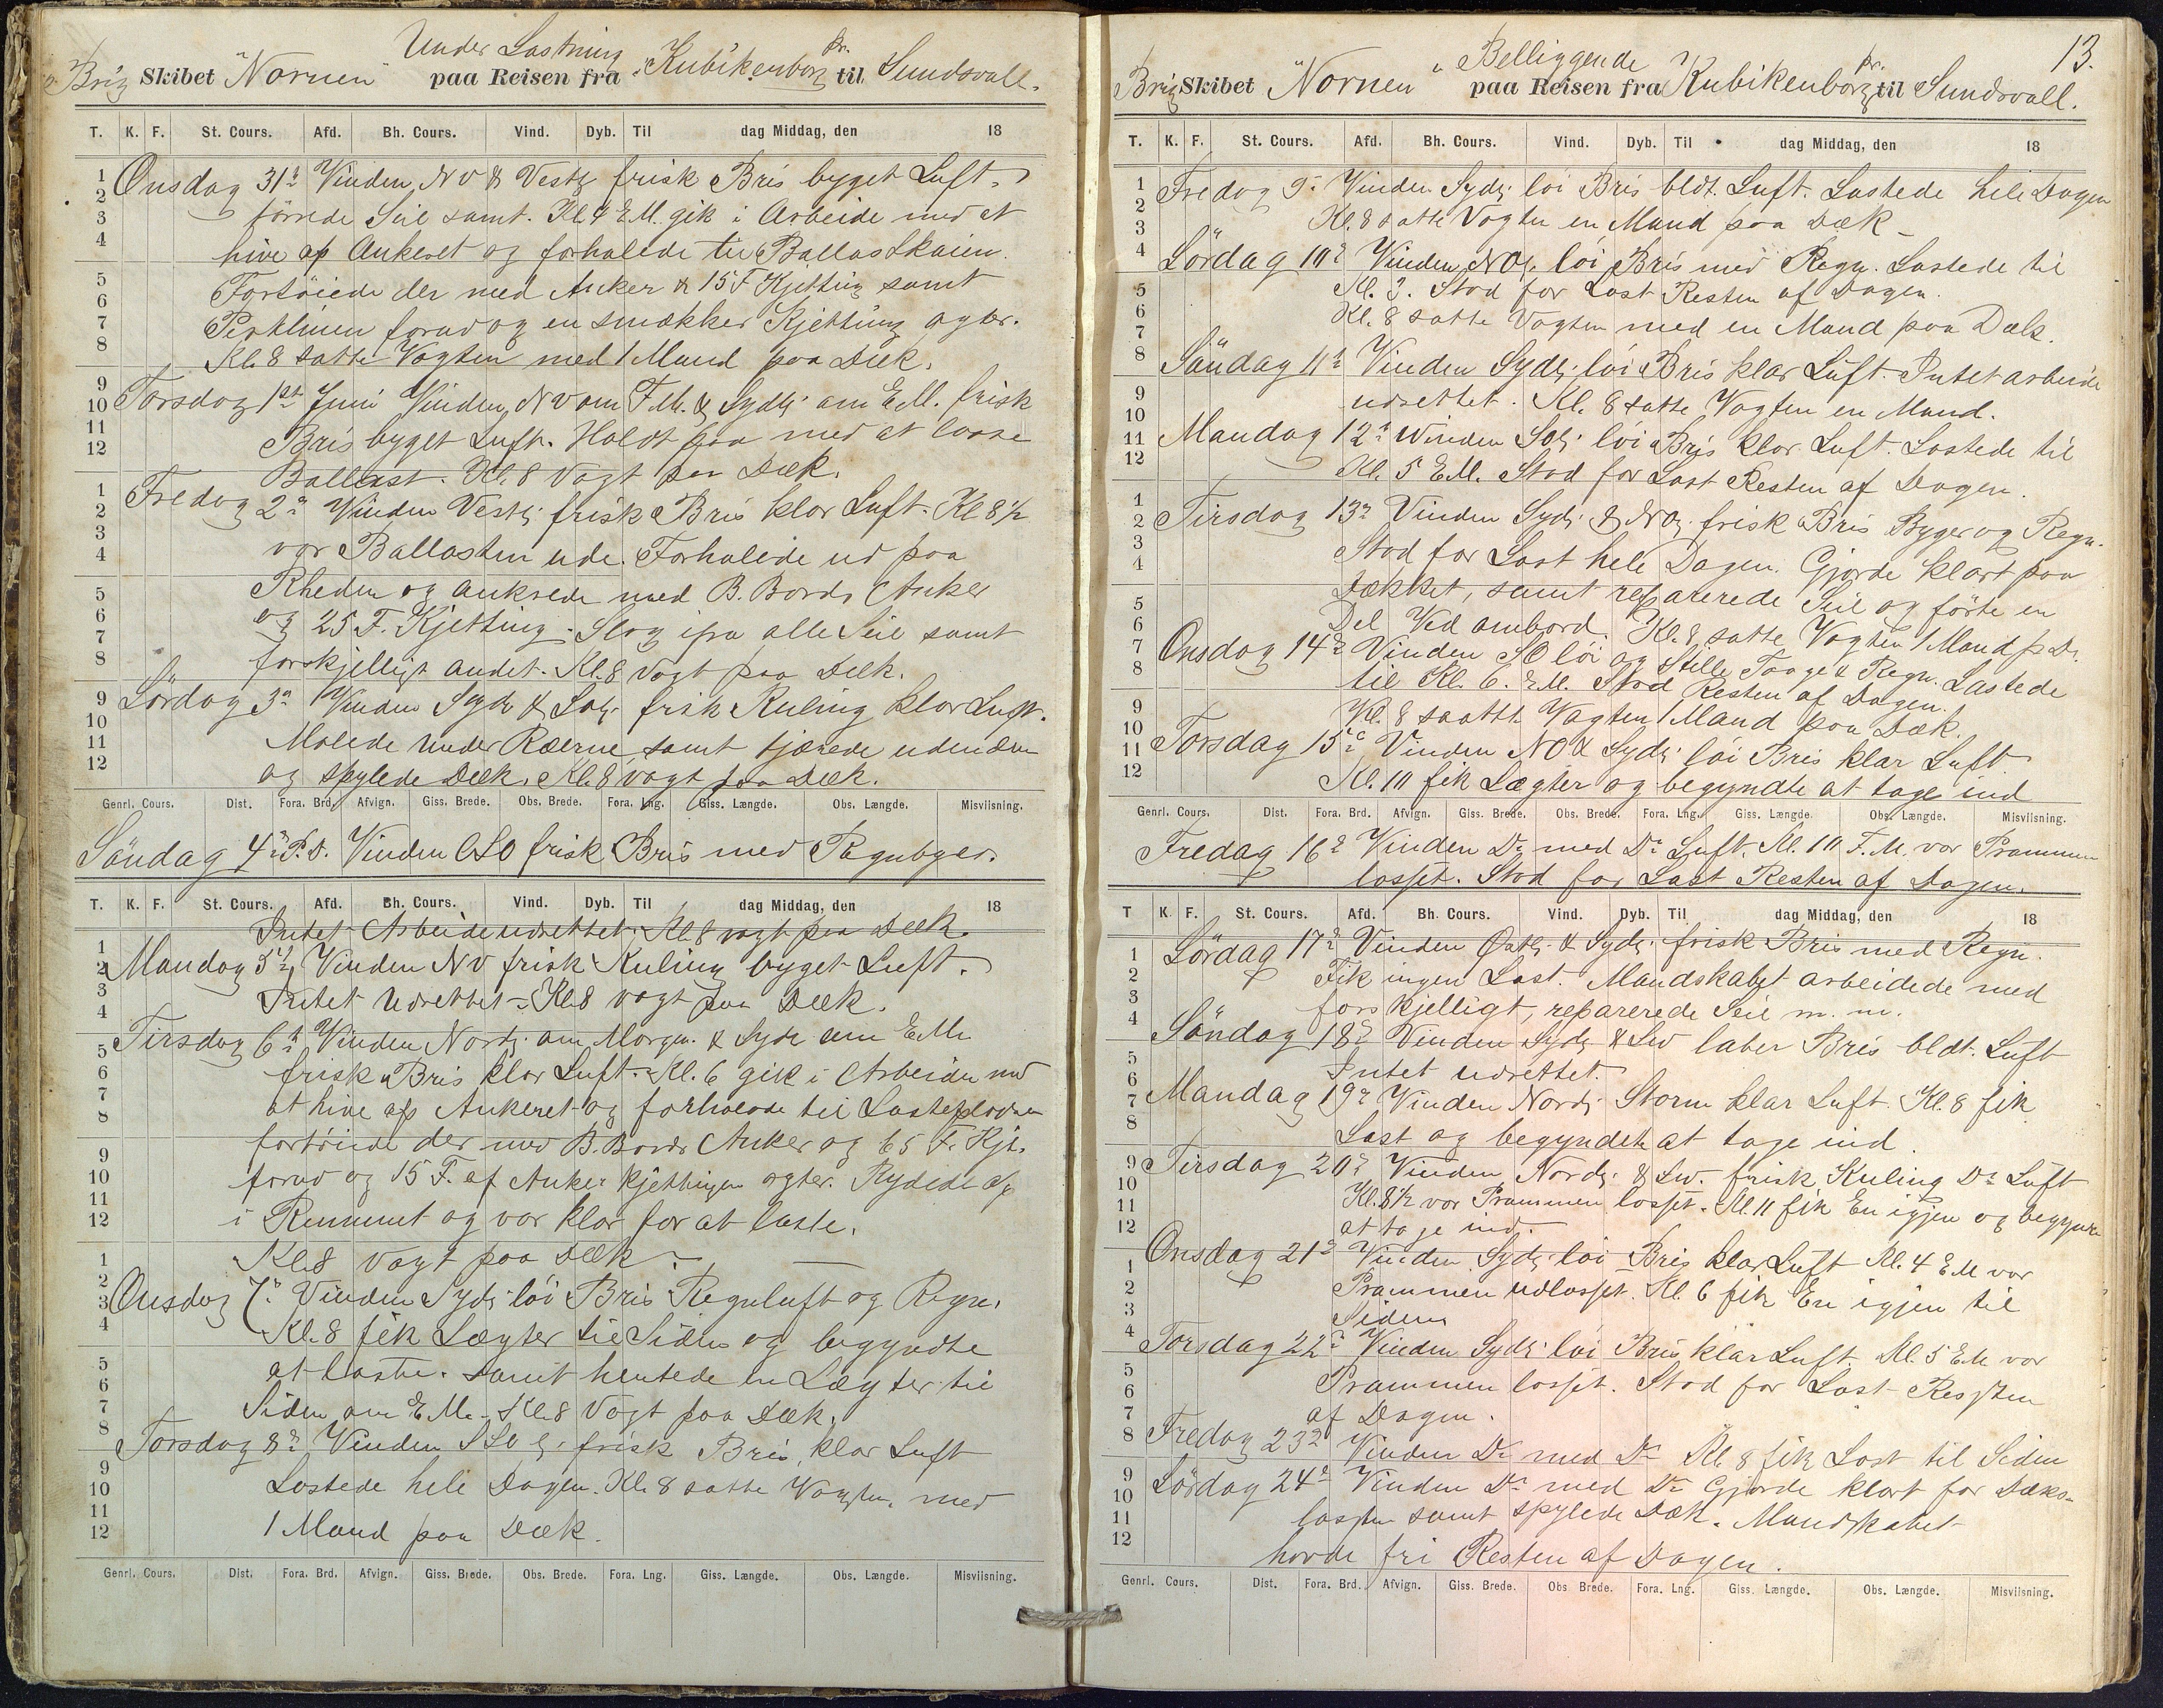 Under Lastning
Brig Skibet "Nornen" paa Reisen fra Kubikenborg pr. til Sundsvall.
T. K. F. St. Cours. Afd. Bh. Cours. Vind. Dyb. Til dag Middag, den 18
Onsdag 31te Vinden NV & Vestl. frisk Bris byget Luft.
törrede Seil samt. Kl. 4 E.M. gik i Arbeide med at
hive op Ankeret og forhalede til Ballastkaien.
Fortöiede der med Anker & 15 F Kjetting samt
Perklinen forud og en smækker Kjetting agter.
Kl. 8 satte Vagten med 1 Mand paa Dæk.
Torsdag 1ste Juni Vinden NV om F.M. & Sydlig om E.M. frisk
Bris byget Luft. Holdt paa med at losse
Ballast. Kl. 8 Vagt paa Dæk.
Fredag 2n Vinden Vestl. frisk Bris klar Luft. Kl 8 1/2
var Ballasten ude. Forhalede ud paa
Rheden og ankrede med B. Bords Anker
og 25 F. Kjetting. Slog ifra alle Seil samt
forskjelligt andet. Kl. 8 Vagt paa Dæk.
Lördag 3n Vinden Syd & Sol. frisk Kuling klar Luft.
Malede under Ræerne samt tjærede
og spylede Dæk. Kl. 8 vagt paa Dæk.
Genrl. Cours. Dist. Fora. Brd. Afvign. Giss. Brede. Obs. Brede. Fora. Lng. Giss. Længde. Obs. Længde. Misviisning.
Söndag 4n P.D. Vinden OSO frisk Bris med Regnbyger.
T. K. F. St. Cours. Afd. Bh. Cours. Vind. Dyb. Til dag Middag, den 18
Intet Arbeide udrettet. Kl 8 vagt paa Dæk.
Mandag 5te Vinden NV frisk Kuling byget Luft.
Intet Udrettet. Kl 8 vagt paa Dæk.
Tirsdag 6te Vinden Nordl. om Morgn. & Syd om E.M.
frisk Bris klar Luft. Kl. 6 gik i Arbeide med
at hive op Ankeret og forhalede til Lastepladsen
fortöiede der med B. Bords Anker og 65 F. Kjt.
forud og 15 F. af Anker kjettingen agter. Rydede op
i Rummet og var klar for at laste.
Kl. 8 vagt paa Dæk.
Onsdag 7n Vinden Sydl. löi Bris Regnluft og Regn.
Kl. 8 fik Lægter til Siden og begyndte
at laste. Samt hentede en Lægter til
Siden om E.M. Kl. 8 Vagt paa Dæk.
Torsdag 8n Vinden SSO frisk Bris, klar Luft
Lastede hele Dagen. Kl. 8 satte Vagten, med
1 Mand paa Dæk.
Genrl. Cours. Dist. Fora. Brd. Afvign. Giss. Brede. Obs. Brede. Fora. Lng. Giss. Længde. Obs. Længde. Misviisning.
13.
Beliggende
Brig Skibet "Nornen" paa Reisen fra Kubikenborg pr. til Sundsvall.
T. K. F. St. Cours. Afd. Bh. Cours. Vind. Dyb. Til dag Middag, den 18
Fredag 9n Vinden Sydl. löi Bris bldt. Luft. Lastede hele Dagen
Kl. 8 satte Vagten en Mand paa Dæk
Lördag 10n Vinden NOl. löi Bris med Regn. Lastede til
Kl. 3. Stod for Last Resten af Dagen.
Kl. 8 satte Vagten med en Mand paa Dæk.
Söndag 11te Vinden Sydl. löi Bris klar Luft. Intet arbeide
udrettet. Kl. 8 satte Vagten en Mand.
Mandag 12te Winden SOl. löi Bris klar Luft. Lastede til
Kl. 5 E.M. Stod for Last Resten af Dagen.
Tirsdag 13n Vinden Sydl. & NOl. frisk Bris Byger og Regn.
Stod for Last hele Dagen. Gjorde klart paa
Dækket, samt reparerede Seil og förte en
Del Ved ombord. Kl. 8 satte Vagten 1 Mand p. D.
Onsdag 14n Vinden SO löi og Stille Taage & Regn. Lastede
til Kl. 6. E.M. Stod Resten af Dagen.
Kl. 8 saatte Vagten 1 Mand paa Dæk.
Torsdag 15de Vinden NO & Sydl. löi Bris klar Luft
Kl. 10 fik Lægter og begyndte at tage ind
Genrl. Cours. Dist. Fora. Brd. Afvign. Giss. Brede. Obs. Brede. Fora. Lng. Giss. Længde. Obs. Længde. Misviisning.
Fredag 16n Vinden Do med Do Luft. Kl. 10 F.M. var Prammen
losset. Stod for Last Resten af Dagen.
T K. F. St. Cours. Afd. Bh. Cours. Vind. Dyb. Til dag Middag, den 18
Lördag 17n Vinden Östl. & Sydl. frisk Bris med Regn.
Fik ingen Last. Mandskabet arbeidede med
forskjelligt, reparerede Seil m. m.
Söndag 18n Vinden Sydl. & SW laber Bris bldt. Luft
Intet udrettet.
Mandag 19n Vinden Nordl. Storm klar Luft. Kl. 8 fik
Last og begyndte at tage ind.
Tirsdag 20n Vinden Nordl. & SW. frisk Kuling Do Luft
Kl. 8 1/2 var Prammen losset. Kl. 11 fik En igjen og begynte
at tage ind.
Onsdag 21n Vinden Sydl. löi Bris klar Luft Kl. 4 E.M var
Prammen udlosset. Kl. 6 fik En igjen til
Siden
Torsdag 22n Vinden Sydl. löi Bris klar Luft. Kl. 5 E.M var
Prammen losset. Stod for Last Resten
af Dagen.
Fredag 23n Vinden Do med Do Kl. 8 fik Last til Siden
Lördag 24n Vinden Do med Do Gjorde klart for Dæks-
lasten samt spylede Dæk. Mandskabet
havde fri Resten af Dagen.
Genrl. Cours. Dist. Fora. Brd. Afvign. Giss. Brede. Obs Brede. Fora. Lng. Giss. Længde. Obs. Længde. Misviisning.